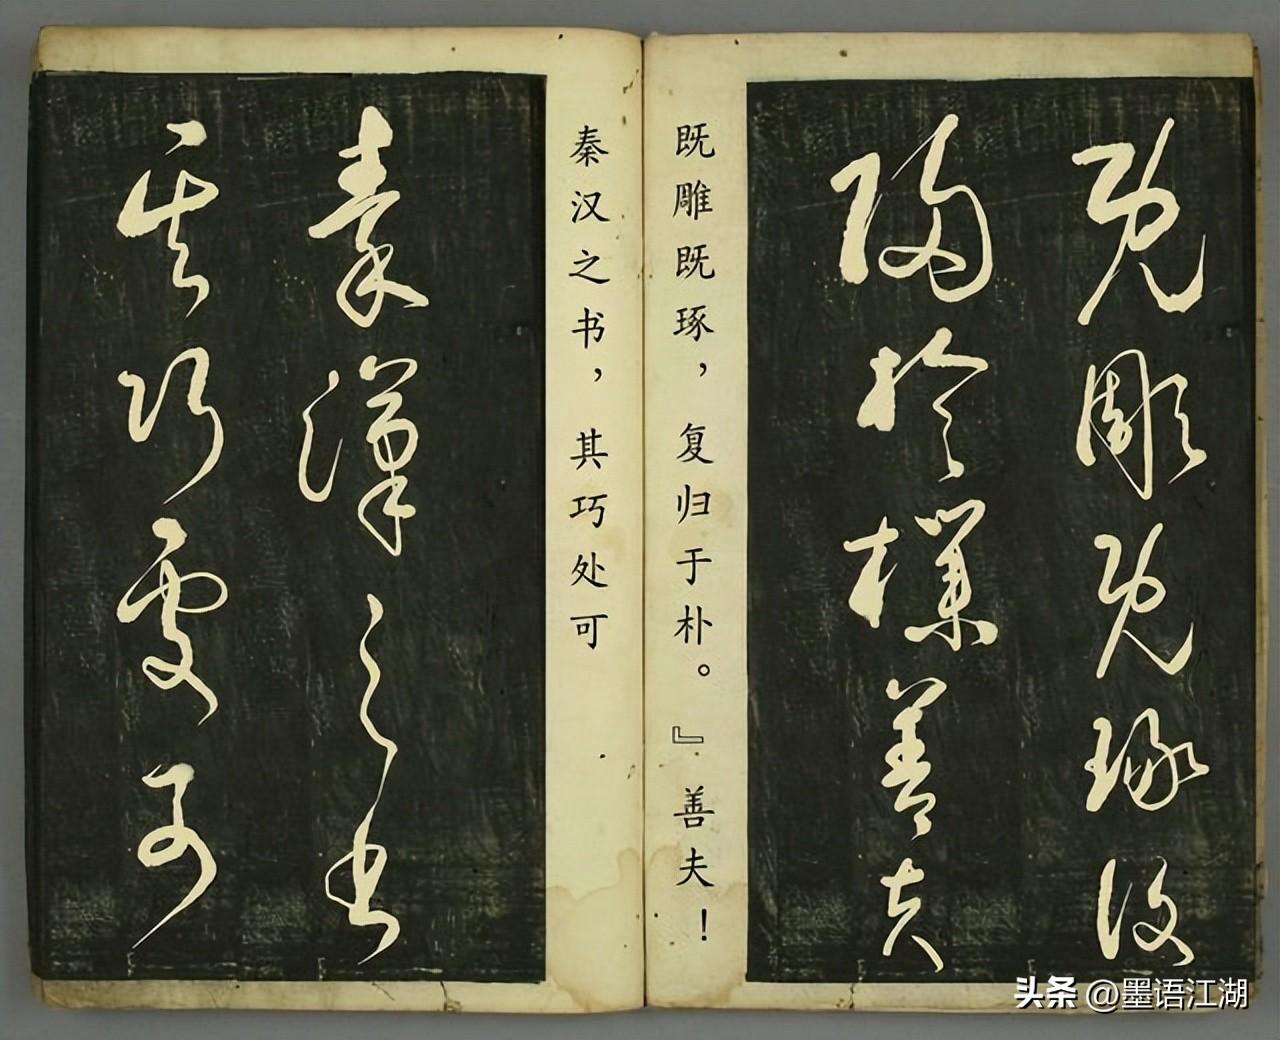 既雕既琢復
歸於樸善夫
既雕既琢，复归于朴。』善夫！
秦汉之书，其巧处可
秦漢之書
其巧處可
头条 @墨语江湖